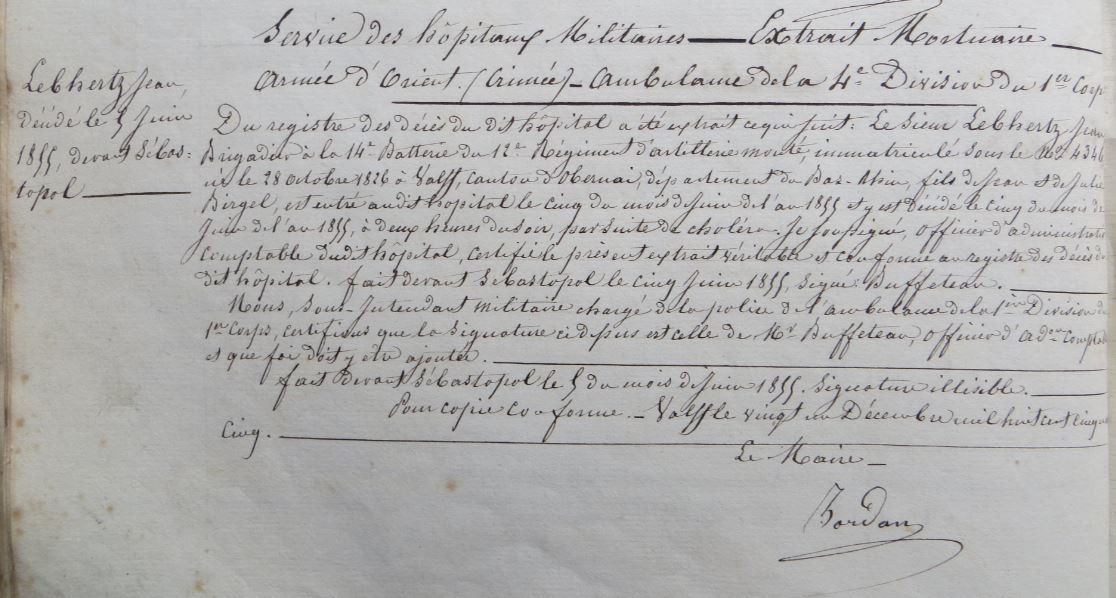 Service des hôpitaux Militaires — Extrait Mortuaire —
Armée d'Orient. (Crimée) — Ambulance de la 4e Division du 1er Corps
Lebhertz Jean,
décédé le 5 Juin
1855, devant Sébas-
topol —
Du registre des décès du dit hôpital a été extrait ce qui suit: Le Sieur Lebhertz Jean
Brigadier à la 14e Batterie du 12e Régiment d'artillerie monté, immatriculé sous le No 4346
né le 28 octobre 1826 à Valff, canton d'Obernai, département du Bas-Rhin, fils de Jean et de Julie
Birgel, est entré au dit hôpital le cinq du mois de Juin de l'an 1855 et y est décédé le cinq du mois de
Juin de l'an 1855, à deux heures du soir, par suite de choléra. Je soussigné, officier d'administration
comptable du dit hôpital, certifie le présent extrait véritable et conforme au registre des décès du
dit hôpital. fait devant Sébastopol le cinq Juin 1855, signé: Buffeteau. —
Nous, Sous-Intendant militaire chargé de la police de l'ambulance de la 1ère Division du
1er Corps, certifions que la signature ci depus est celle de Mr Buffeteau, officier d'adon comptable
et que foi doit y être ajouter. —
fait devant Sébastopol le 5 du mois de Juin 1855. Signature illisible. —
Pour copie conforme. — Valff le vingt un Décembre mil huit cent cinquante
Cinq. —
Le Maire —
Jordan